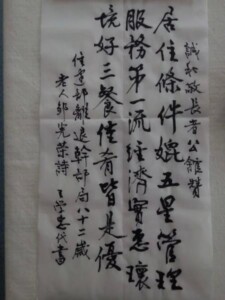 誠和敬長者公館贊
居住條件媲五星管理
服務第一流經濟實惠環
境好三餐佳肴皆是優
住建部離退幹部局八十二歲
老人郭光榮詩 王學忠代書